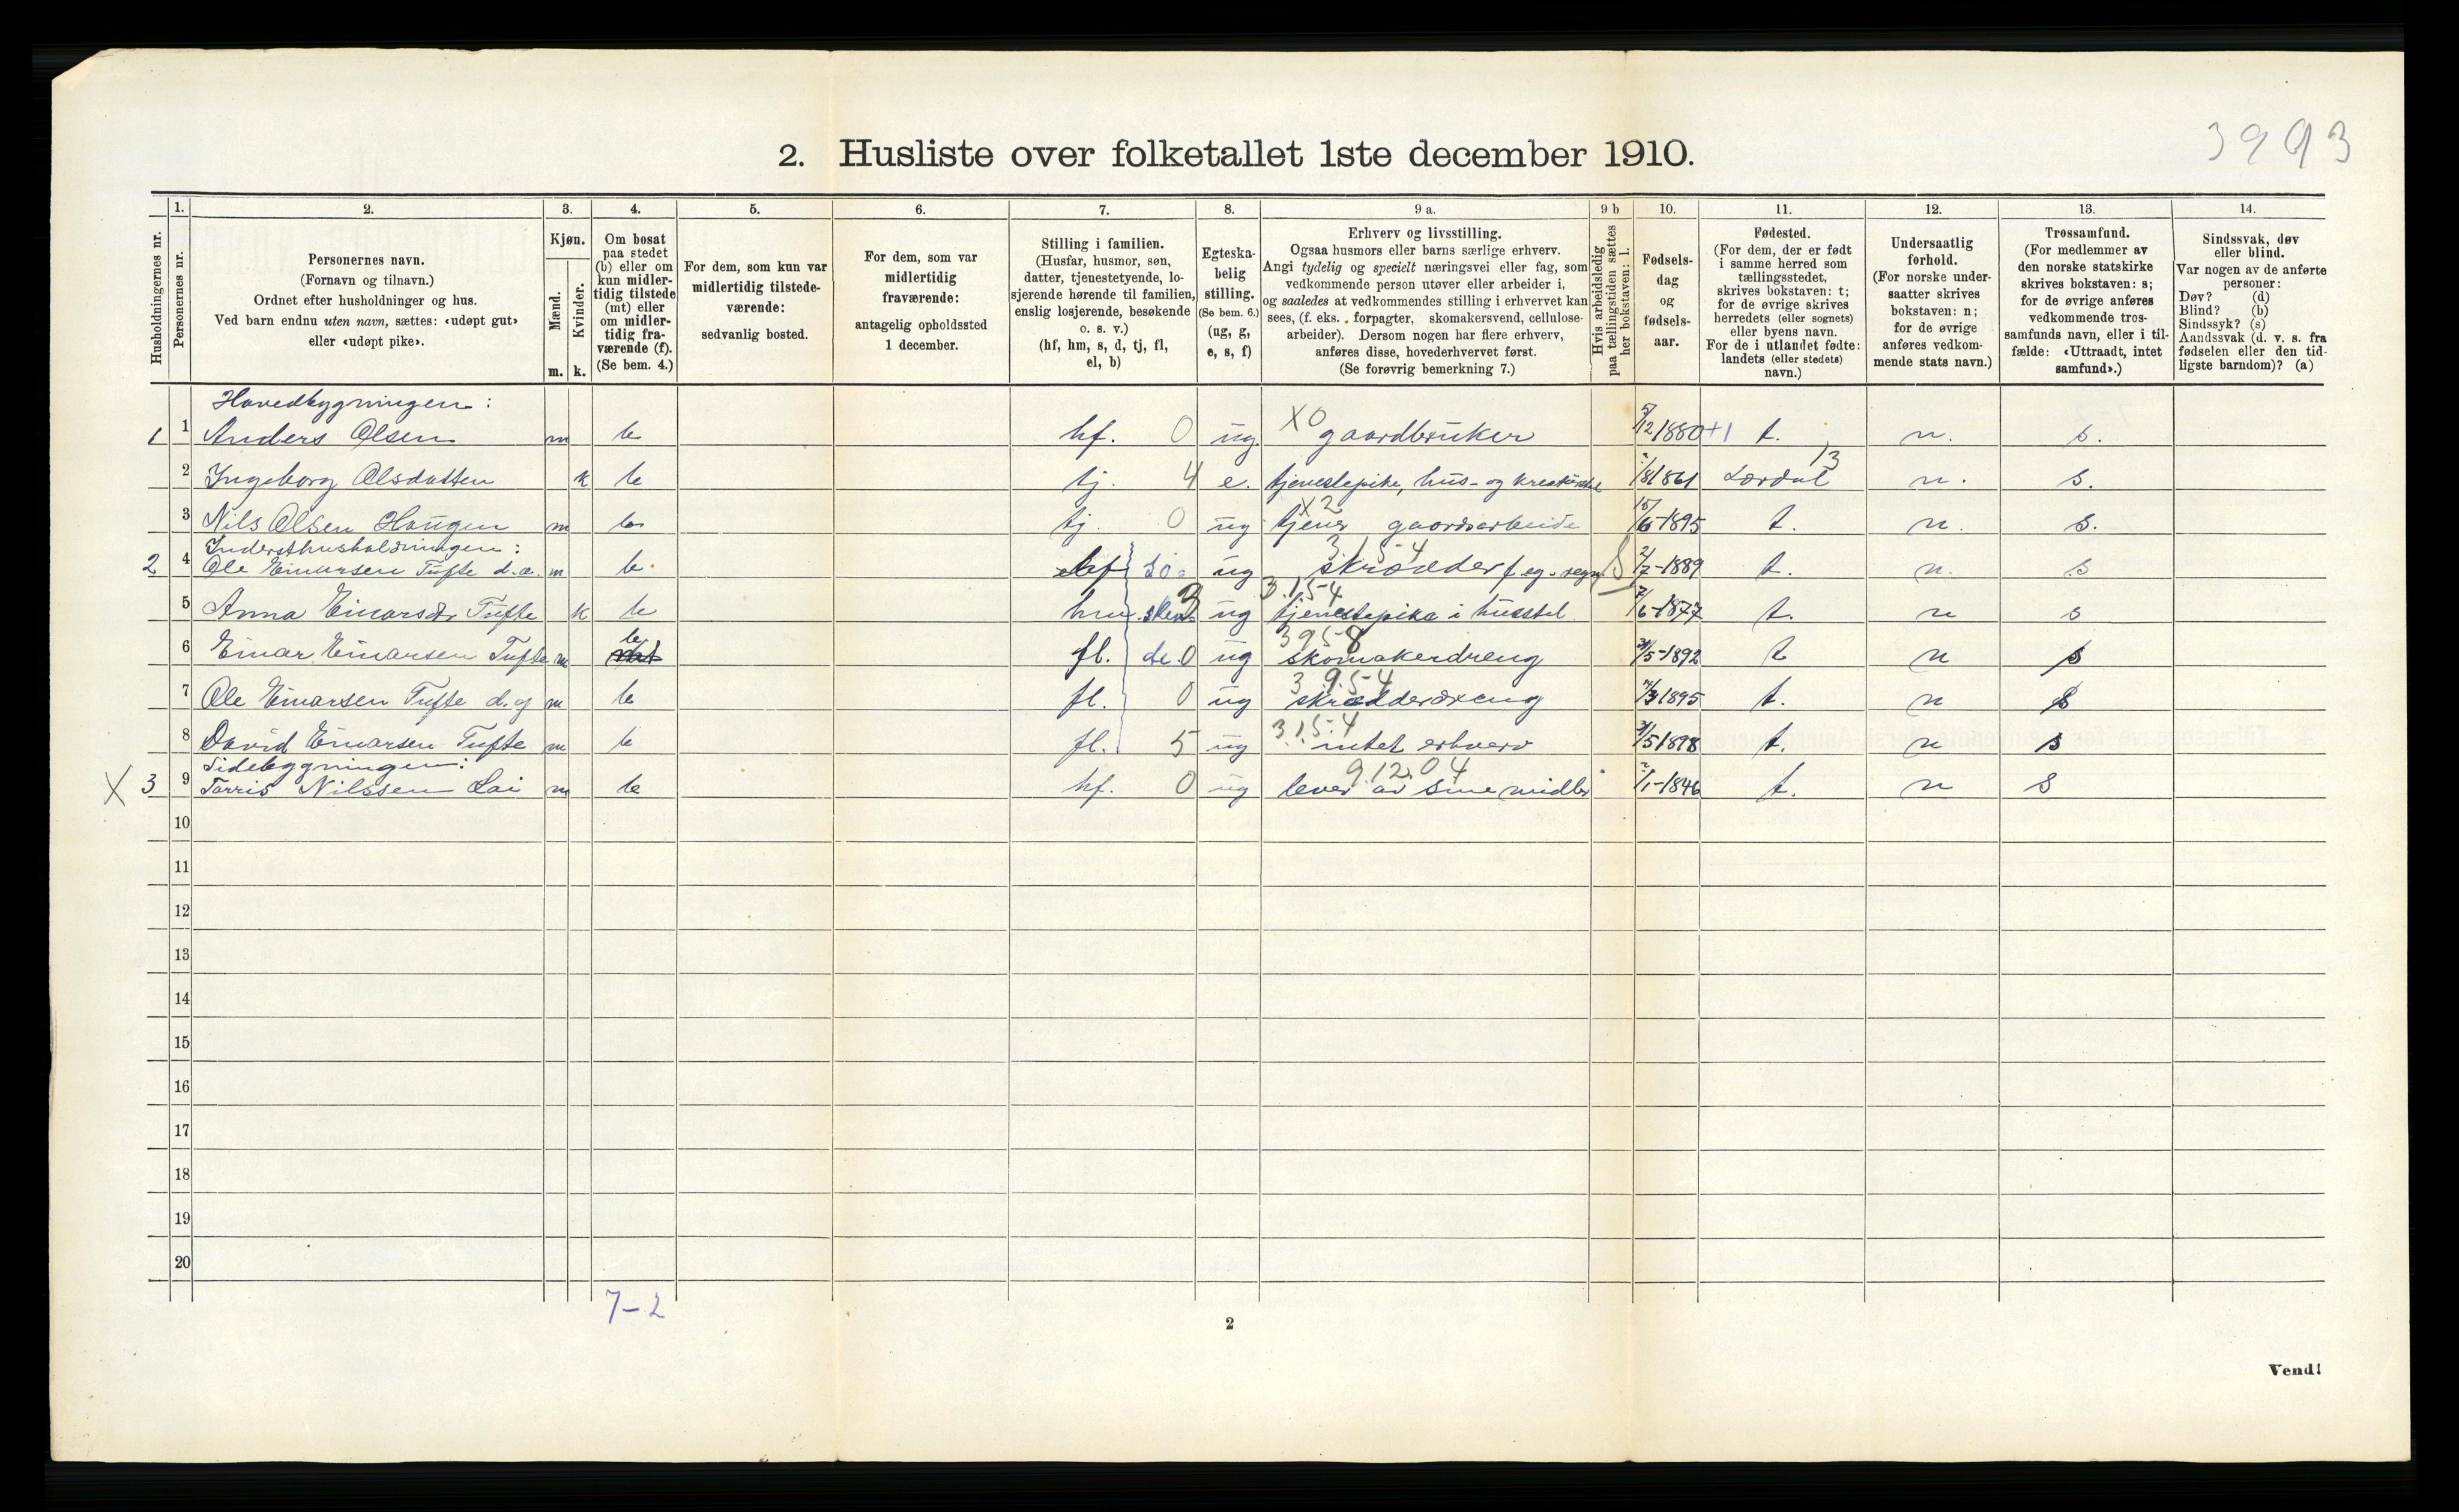 3993
2. Husliste over folketallet 1ste december 1910.
Husholdningernes nr.
1.
Personernes nr.
2.
Personernes navn.
(Fornavn og tilnavn.)
Ordnet efter husholdninger og hus.
Ved barn endnu uten navn, sættes: «udøpt gut»
eller «udøpt pike».
3.
Kjøn.
Mænd.
Kvinder.
m. k.
4.
Om bosat
paa stedet
(b) eller om
kun midler-
tidig tilstede
(mt) eller
om midler-
tidig fra-
værende (f).
(Se bem. 4.)
5.
For dem, som kun var
midlertidig tilstede-
værende:
sedvanlig bosted.
6.
For dem, som var
midlertidig
fraværende:
antagelig opholdssted
1 december.
7.
Stilling i familien.
(Husfar, husmor, søn,
datter, tjenestetyende, lo-
sjerende hørende til familien,
enslig losjerende, besøkende
o. s. v.)
(hf, hm, s, d, tj, fl,
el, b)
8.
Egteska-
belig
stilling.
(Se bem. 6.)
(ug, g,
e, s, f)
9 a.
Erhverv og livsstilling.
Ogsaa husmors eller barns særlige erhverv.
Angi tydelig og specielt næringsvei eller fag, som
vedkommende person utøver eller arbeider i,
og saaledes at vedkommendes stilling i erhvervet kan
sees, (f. eks. forpagter, skomakersvend, cellulose-
arbeider). Dersom nogen har flere erhverv,
anføres disse, hovederhvervet først.
(Se forøvrig bemerkning 7.)
9 b
Hvis arbeidsledig
paa tællingstiden sættes
her bokstaven: l.
10.
Fødsels-
dag
og
fødsels-
aar.
11.
Fødested.
(For dem, der er født
i samme herred som
tællingsstedet,
skrives bokstaven: t;
for de øvrige skrives
herredets (eller sognets)
eller byens navn.
For de i utlandet fødte:
landets (eller stedets)
navn.)
12.
Undersaatlig
forhold.
(For norske under-
saatter skrives
bokstaven: n;
for de øvrige
anføres vedkom-
mende stats navn.)
13.
Trossamfund.
(For medlemmer av
den norske statskirke
skrives bokstaven: s;
for de øvrige anføres
vedkommende tros-
samfunds navn, eller i til-
fælde: «Uttraadt, intet
samfund».)
14.
Sindssvak, døv
eller blind.
Var nogen av de anførte
personer:
Døv? (d)
Blind? (b)
Sindssyk? (s)
Aandssvak (d. v. s. fra
fødselen eller den tid-
ligste barndom)? (a)
Hovedbygningen:
1 1 Anders Olsen m b hf. 0 ug X0 gaardbruker 5/2 1880 +1 t. n. s.
2 Ingeborg Olsdatter k b tj. 4 e. tjenestepike, hus- og 1/8 1861 Lærdal 13 n. s.
3 Nils Olsen Haugen m b tj. 0 ug X2 tjener gaardsarbeide 15/6-1895 t. n. s.
Indersthusholdningen:
2 4 Ole Einarsen Tufte d.æ. m b. hf ug 3.15-4 skrædder f eg. regn. 2/7-1889 t. n. s
5 Anna Einarsdr Tufte k b ug 3.15-4 tjenestepike i husstel 7/6-1877 t. n s
6 Einar Einarsen Tufte m b fl. 0 ug 395-8 skomakerdreng 31/5-1892 t n s
7 Ole Einarsen Tufte d.y m b fl. 0 ug 3.9.5-4 skrædderdreng 1/3 1895 t. n s
8 David Einarsen Tufte m b fl. 5 ug 3.15-4 intet erhverv 31/5 1898 t. n s
Sidebygningen:
X 3 9 Tarris Nilssen Lai m b hf. 0 ug 9.12.04 lever av sine midler 2/1-1846 t. n s
10
11
12
13
14
15
16
17
18
19
20
7-2
2
Vend!